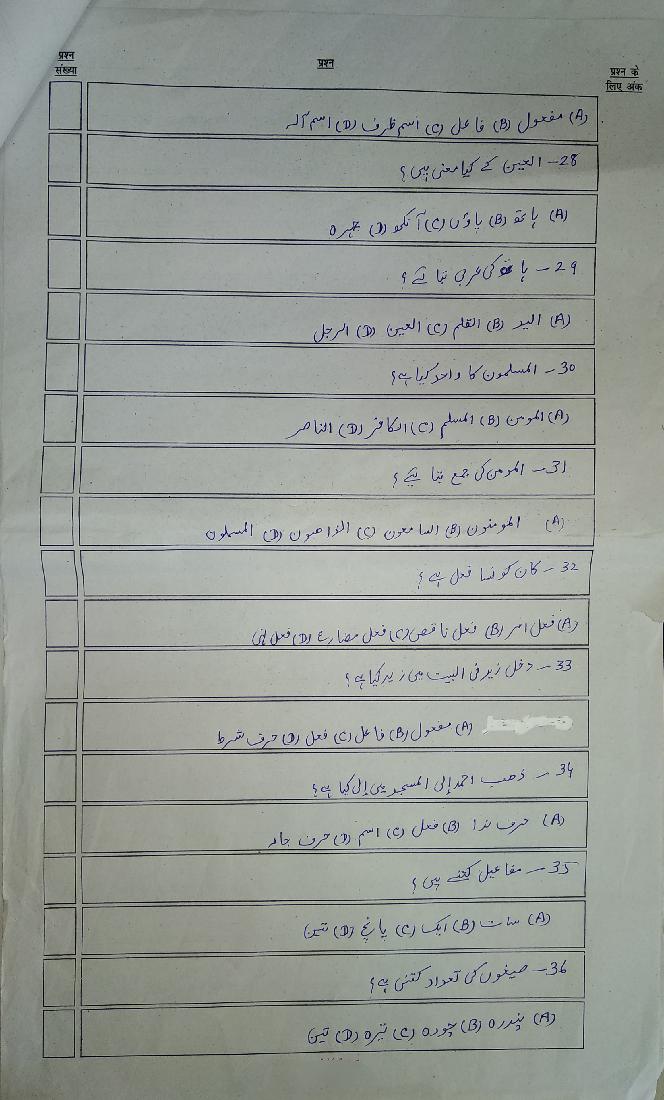 प्रश्न संख्या
प्रश्न
प्रश्न के लिए अंक
(A) مفعول (B) فاعل (C) اسم ظرف (D) اسم آلہ
28– العین کے کیا معنی ہیں؟
(A) ہاتھ (B) پاؤں (C) آنکھ (D) چہرہ
29 – ہاتھ کی عربی بتائے؟
(A) الید (B) القلم (C) العین (D) الرجل
30– المسلمون کا واحد کیا ہے؟
(A) المومن (B) المسلم (C) الکافر (D) الناصر
31– المومن کی جمع بتائیے؟
(A) المومنون (B) السامعون (C) (D) المسلمون
32– کان کونسا فعل ہے؟
(A) فعل امر (B) فعل ناقص (C) فعل مضارع (D) فعل نہی
33– دخل زید فی البیت میں زید کیا ہے؟
(A) مفعول (B) فاعل (C) فعل (D) حرف شرط
34 – ذھب احمد إلی المسجد میں إلی کیا ہے؟
(A) حرف ندا (B) فعل (C) اسم (D) حرف جار
35– مفاعیل کتنے ہیں؟
(A) سات (B) ایک (C) پانچ (D) تین
36– صیغوں کی تعداد کتنی ہے؟
(A) پندرہ (B) چودہ (C) تیرہ (D) تین